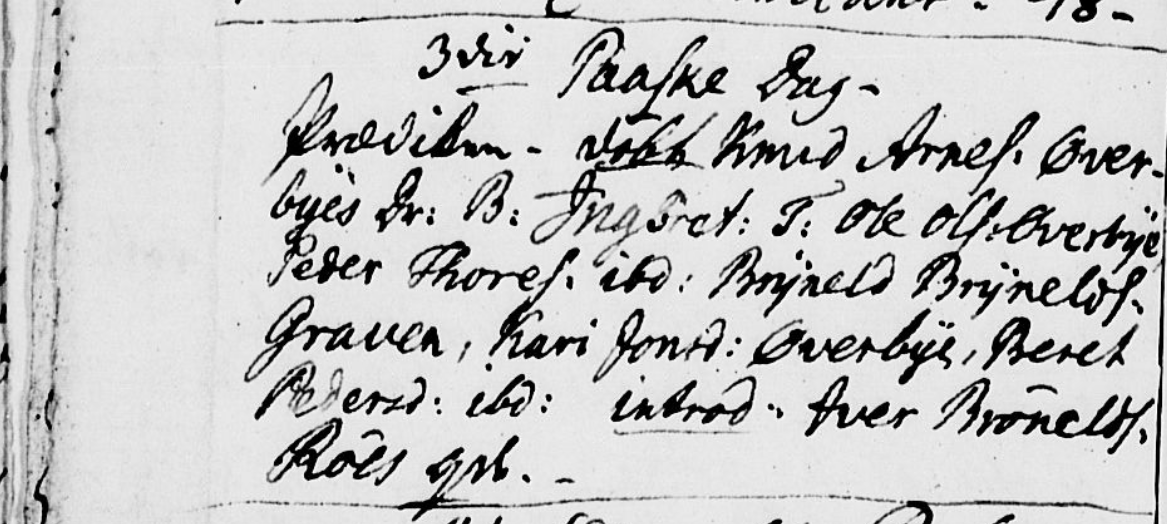 18-
3die Paaske Dag-
Prædiken - døbt Knud Arnes. Over-
byes Dr: B: Ingbret: T: Ole Ols: Overbÿe
Peder Thores. ibd: Brÿneld Brÿnelds.
Graven, Kari Jonsd: Overbÿe, Beret
Pedersd: ibd: introd. Iver Brÿnelds.
Röes qvl. -